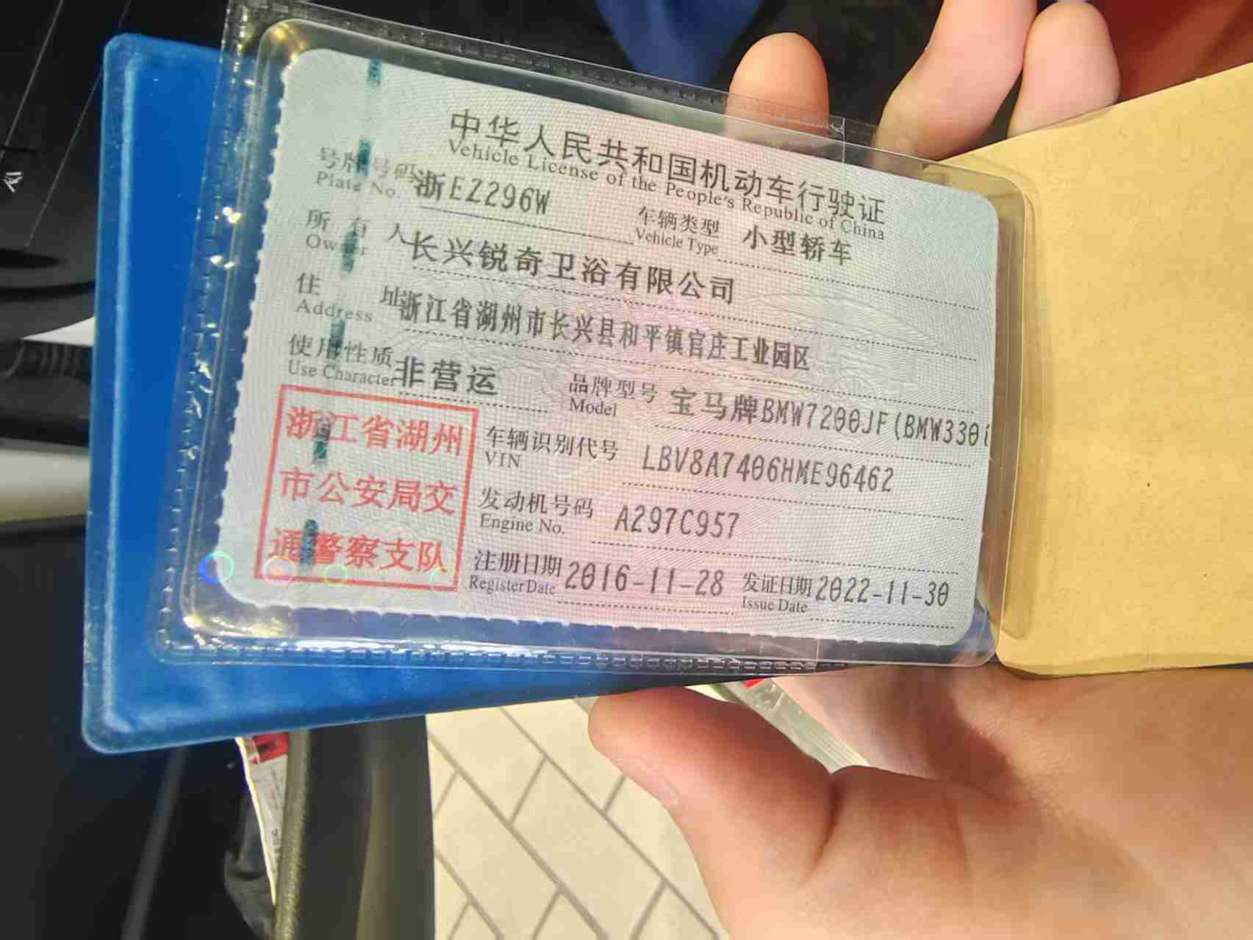 中华人民共和国机动车行驶证
Vehicle License of the People's Republic of China
号牌号码 浙EZ296W 车辆类型 小型轿车
Plate No. Vehicle Type
所有人 长兴锐奇卫浴有限公司
Owner
住址 浙江省湖州市长兴县和平镇官庄工业园区
Address
使用性质 非营运 品牌型号 宝马牌BMW7200JF(BMW330i
Use Character Model
浙江省湖州
市公安局交
通警察支队
车辆识别代号 LBV8A7406HME96462
VIN
发动机号码 A297C957
Engine No.
注册日期 2016-11-28 发证日期 2022-11-30
Register Date Issue Date